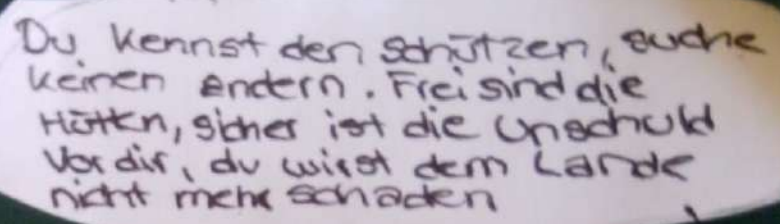 Du kennst den Schützen, suche
keinen andern. Frei sind die
Hütten, sicher ist die Unschuld
vor dir, du wirst dem Lande
nicht mehr schaden